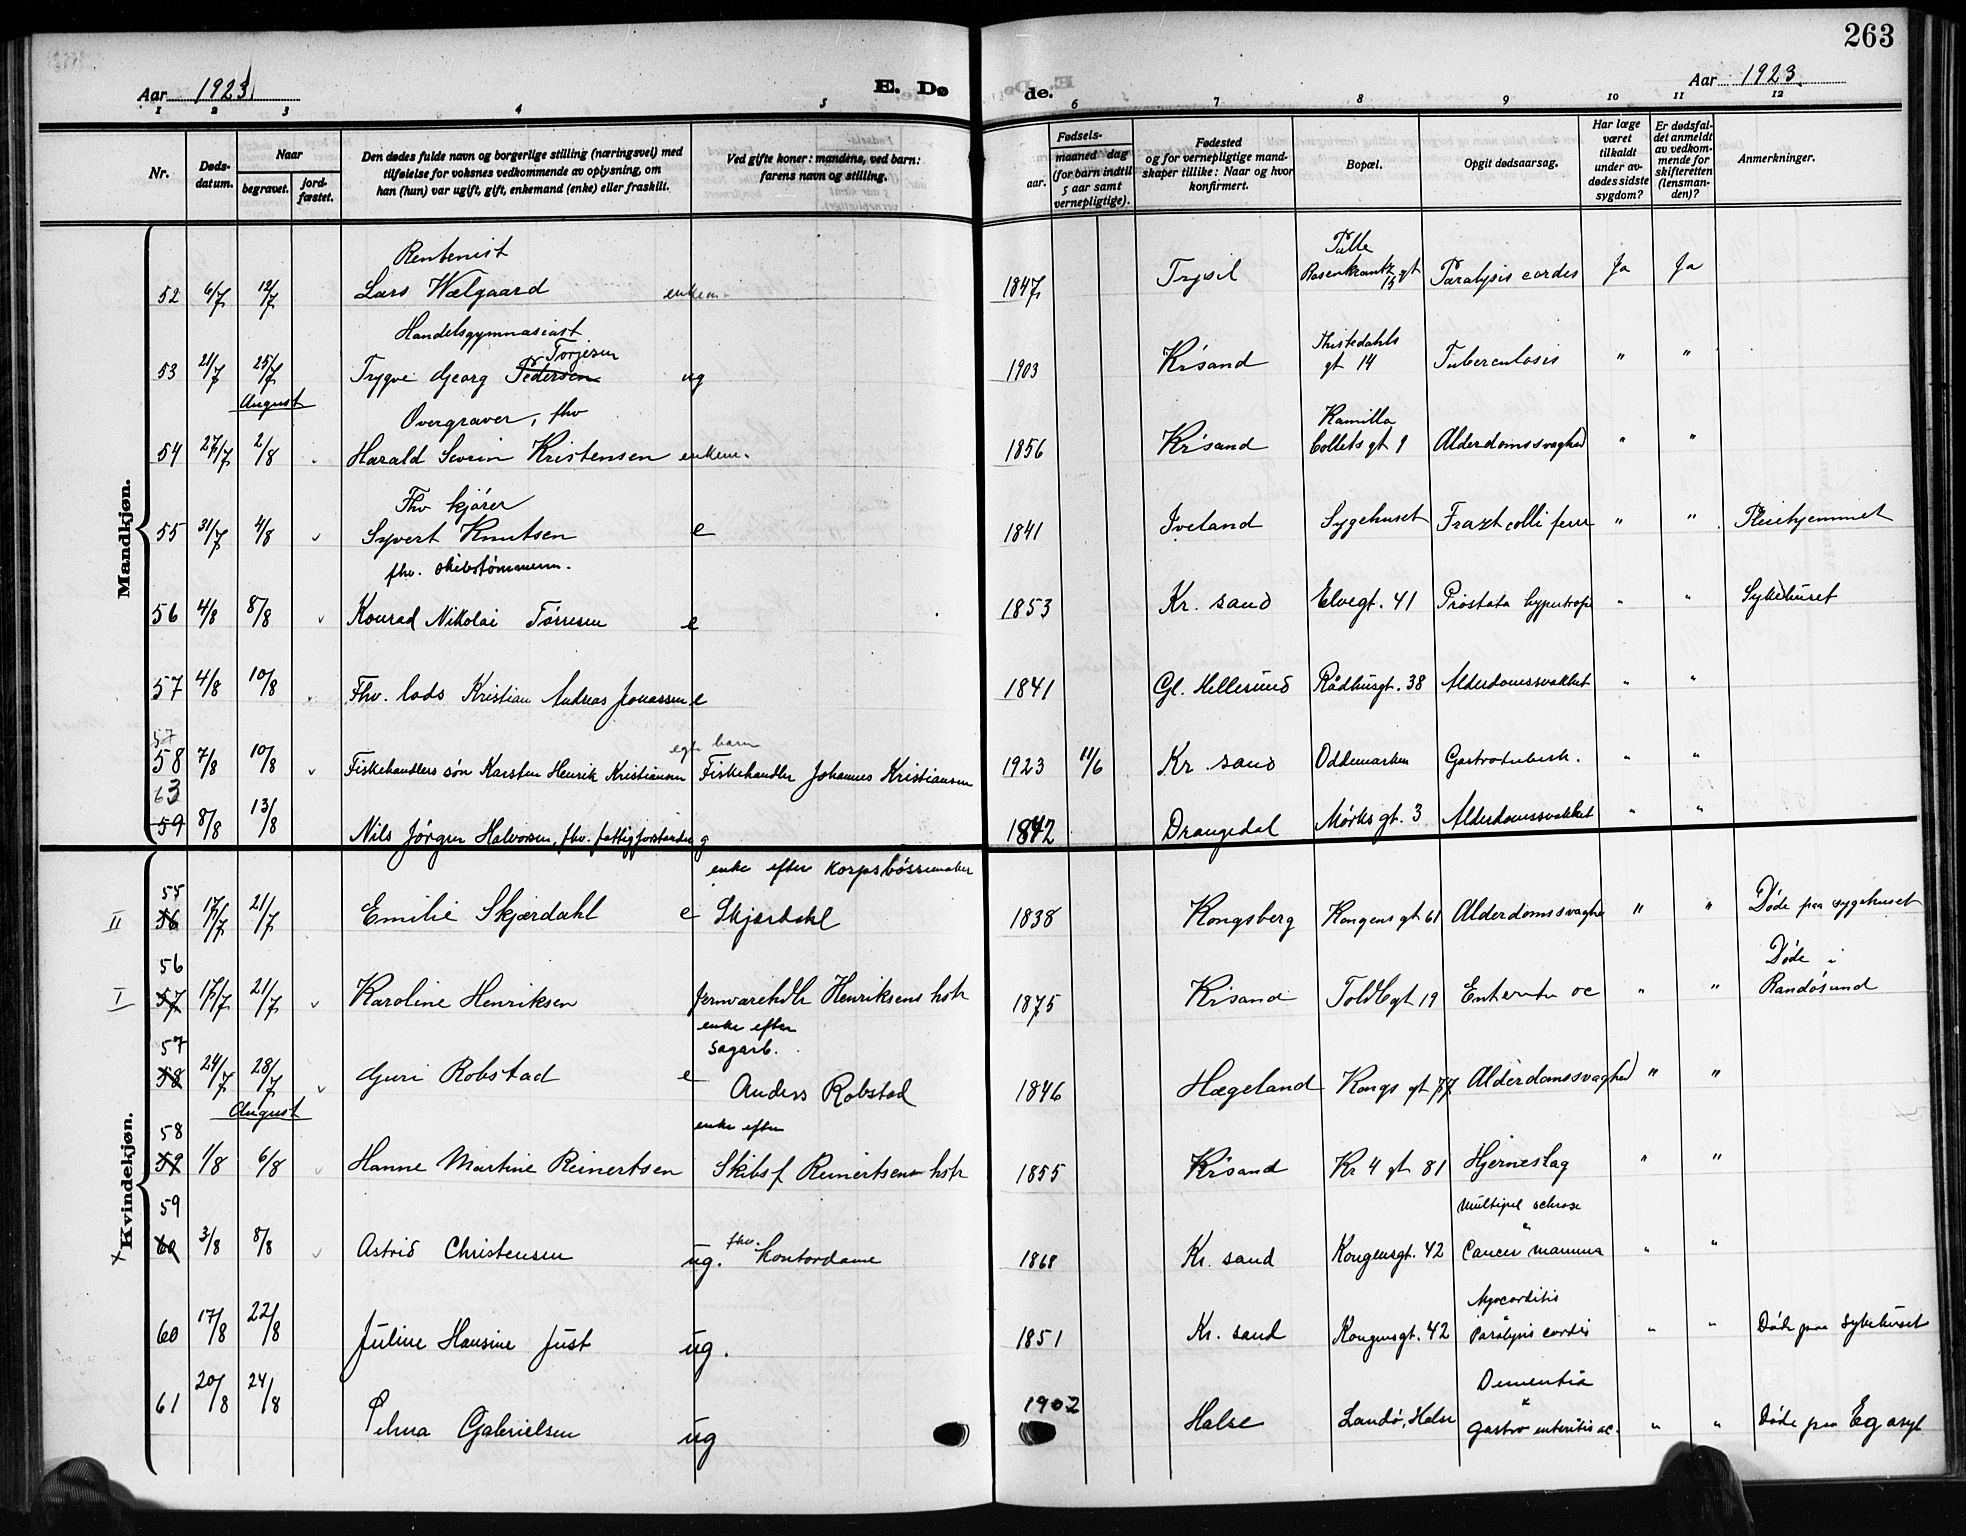 263
Aar 1923
E. Dø
de.
Aar 1923.
1 2 3 4 5 6 7 8 9 10 11 12
Nr.
Døds-
datum.
Naar
begravet.
jord-
fæstet.
Den dødes fulde navn og borgerlige stilling (næringsvei) med
tilføielse for voksnes vedkommende av oplysning, om
han (hun) var ugift, gift, enkemand (enke) eller fraskilt.
Ved gifte koner: mandens, ved barn:
farens navn og stilling.
Fødsels-
aar.
maaned dag
(for barn indtil
5 aar samt
vernepligtige).
Fødested
og for vernepligtige mand-
skaper tillike: Naar og hvor
konfirmert.
Bopæl.
Opgit dødsaarsag.
Har læge
været
tilkaldt
under av-
dødes sidste
sygdom?
Er dødsfal-
det anmeldt
av vedkom-
mende for
skifteretten
(lensman-
den)?
Anmerkninger.
Mandkjøn.
Rentenist
52 6/7 12/7 Lars Wælgaard enkem. 1847 Trysil Palle Rosenkrantz gt 15 Paralysis cordis Ja Ja
Handelsgymnasiast
53 21/7 25/7 Trygve Georg Pedersen Torjesen ug 1903 Kr'sand Thistedahls gt 14 Tuberculosis " "
August
Overgraver, fhv
54 27/7 2/8 Harald Sevrin Kristensen enkem. 1856 Kr'sand Kamilla Collets gt 9 Alderdomssvaghed " "
Fhv kjører
55 31/7 4/8 Syvert Knutsen e 1841 Iveland Sygehuset Frakt colli fem " " Pleiehjemmet
fhv. skibstømmerm.
56 4/8 8/8 Konrad Nikolai Tørresen e 1853 Kr. sand Elvegt. 41 Prostata hypertrofi " " Sykehuset
57 4/8 10/8 Fhv. lods Kristian Andreas Jonassen e 1841 Gl. Hellesund Rådhusgt. 38 Alderdomssvakhet " "
57
egte barn
58 7/8 10/8 Fiskehandlers søn Karsten Henrik Kristiansen Fiskehandler Johannes Kristiansen 1923 11/6 Kr. sand Oddemarken Gastrotuberk. " "
63
59 8/8 13/8 Nils Jørgen Halvorsen, fhv. fattigforstander g 1842 Drangedal Mørks gt. 3 Alderdomssvakhet " "
Kvindekjøn.
enke efter korpsbøssemaker
55
II 56 17/7 21/7 Emilie Skjærdahl e Skjærdahl 1838 Kongsberg Kongens gt 61 Alderdomssvaghe " " Døde paa sygehuset
56
I 57 17/7 21/7 Karoline Henriksen Jernvarehdlr Henriksens hstr 1875 Kr'sand Toldbgt 19 Enteritis ac " " Døde i Randøsund
enke efter
sagarb.
57
58 24/7 28/7 Guri Robstad e Anders Robstad 1846 Hægeland Kongs gt 77 Alderdomssvaghed " "
August
enke efter
58
59 1/8 6/8 Hanne Martine Reinertsen Skibsf Reinertsens hstr 1855 Kr'sand Kr 4 gt 81 Hjerneslag " "
59
x 60 3/8 8/8 Astrid Christensen ug. fhv. kontordame 1868 Kr. sand Kongensgt. 42 Multipel sclrose " Cancer mamma " "
60 17/8 22/8 Juline Hansine Just ug. 1851 Kr. sand Kongensgt. 42 Myocarditis Paralysis cordis " " Døde paa sykehuset
61 20/8 24/8 Selma Gabrielsen ug 1902 Halse Landø, Halse Dementia " Gastro enteritis ac. " " Døde paa Eg asyl